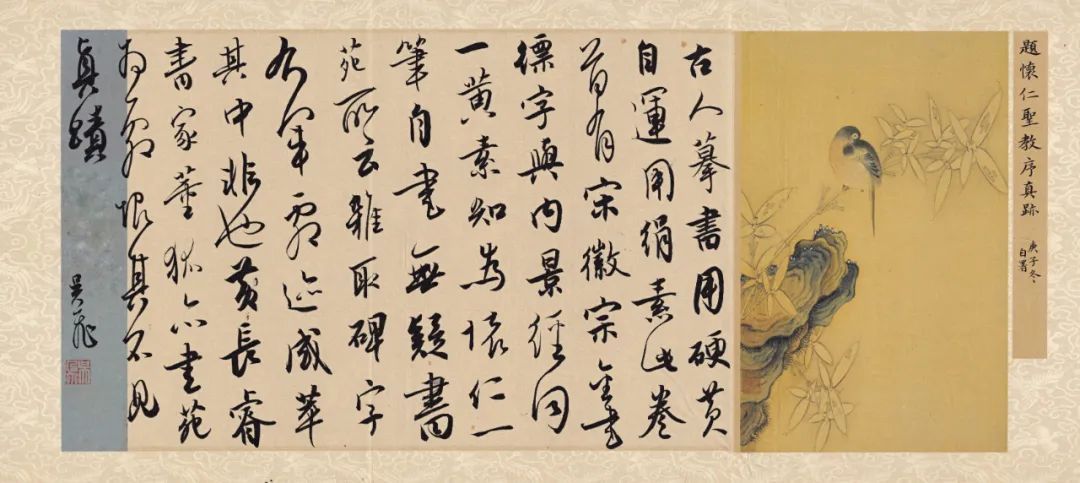 題懷仁聖教序真跡
庚子冬
自署
古人摹書用硬黄
自運用絹素此卷
首有宋徽宗金書
標字與内景經同
一黄素知為懷仁一
筆自書無疑書
苑所云雜取碑字
右軍劇迹咸萃
其中非也黄長睿
書家董狐亦書苑
為恨其不見
真蹟
吳飛